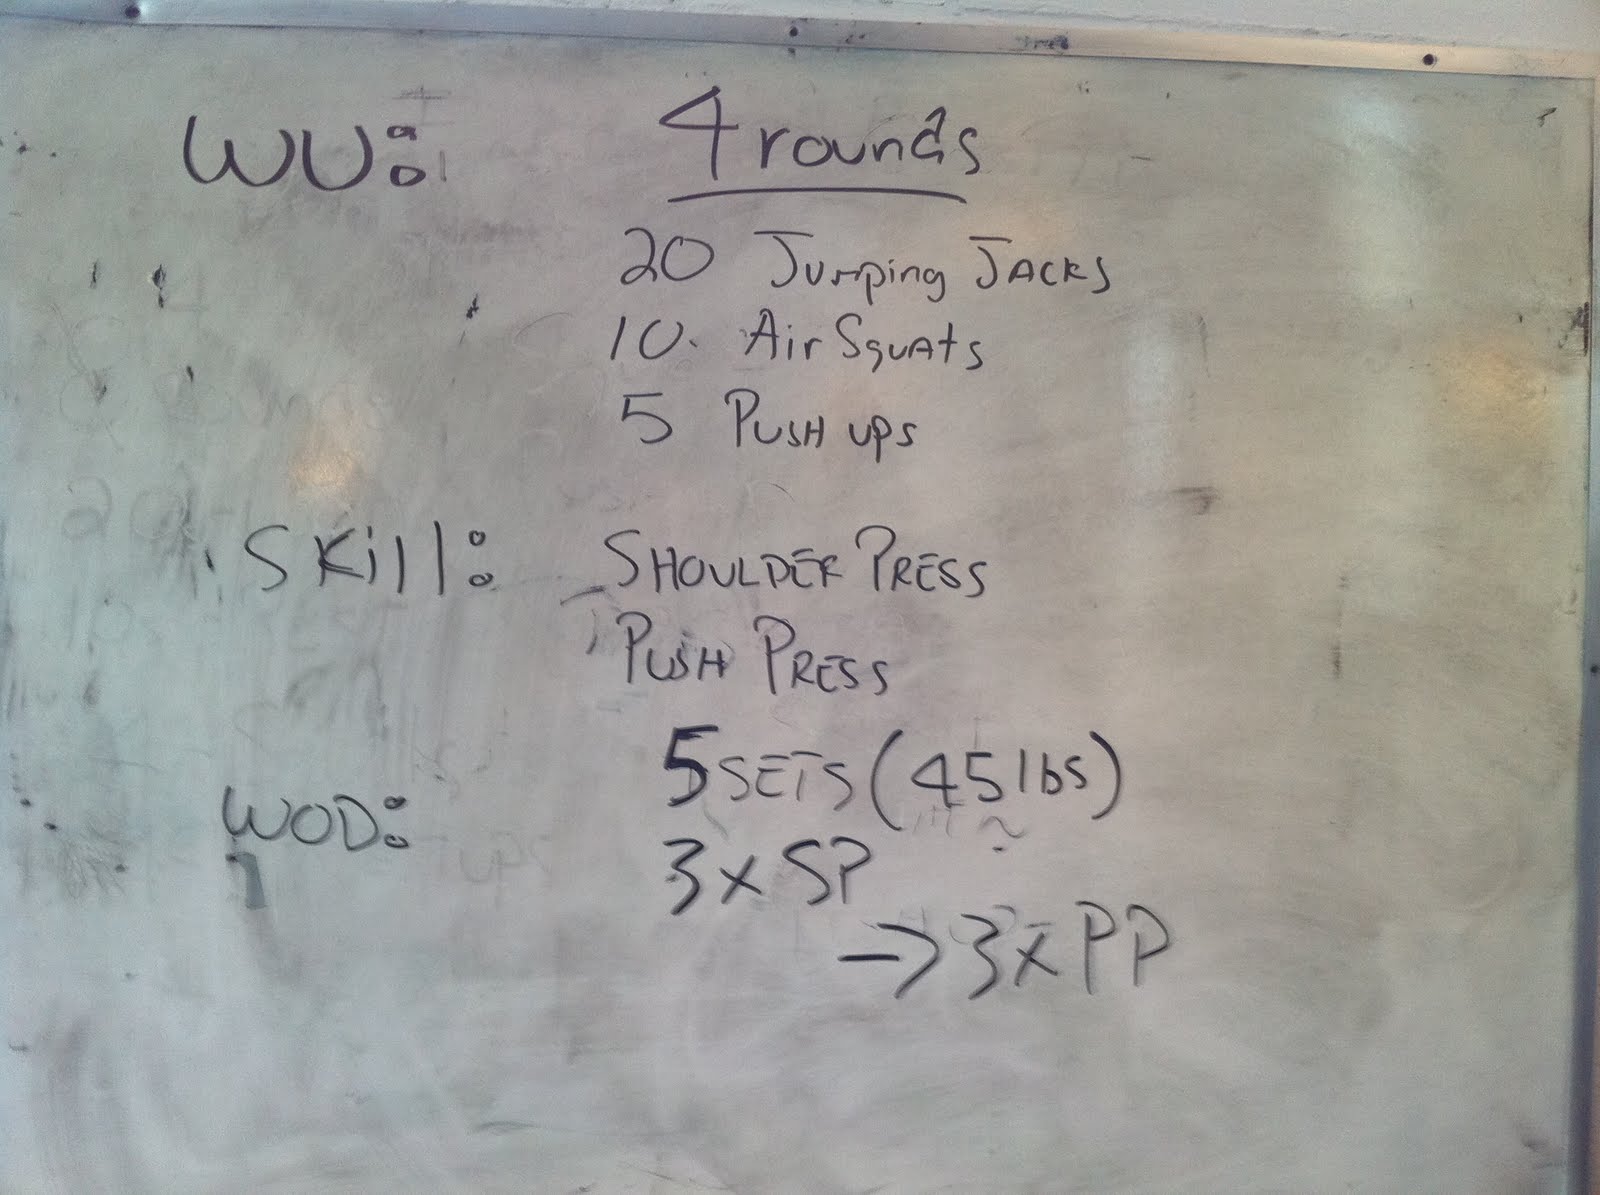 WU: 4 rounds
20 Jumping JACKS
10. Air SquAts
5 PUSH UPS
Skill: SHOULDER PRESS
PUSH PRESS
WOD: 5 SETS (45 lbs)
3 x SP
→ 3 x PP